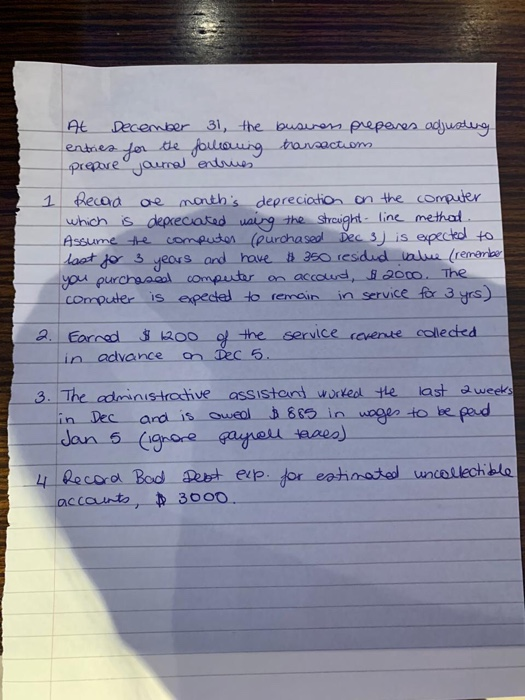 At December 31, the business prepares adjusting
entries for the following transactions
prepare journal entries
1 Record one month's depreciation on the computer
which is depreciated using the straight-line method.
Assume the computer (purchased Dec 3) is expected to
last for 3 years and have $ 350 residual value (remember
you purchased computer on account, $ 2000. The
computer is expected to remain in service for 3 yrs)
2. Earned $ 1200 of the service revenue collected
in advance on Dec 5.
3. The administrative assistant worked the last 2 weeks
in Dec and is owed $ 885 in wages to be paid
Jan 5 (ignore payroll taxes)
4 Record Bad Debt exp. for estimated uncollectible
accounts, $ 3000.